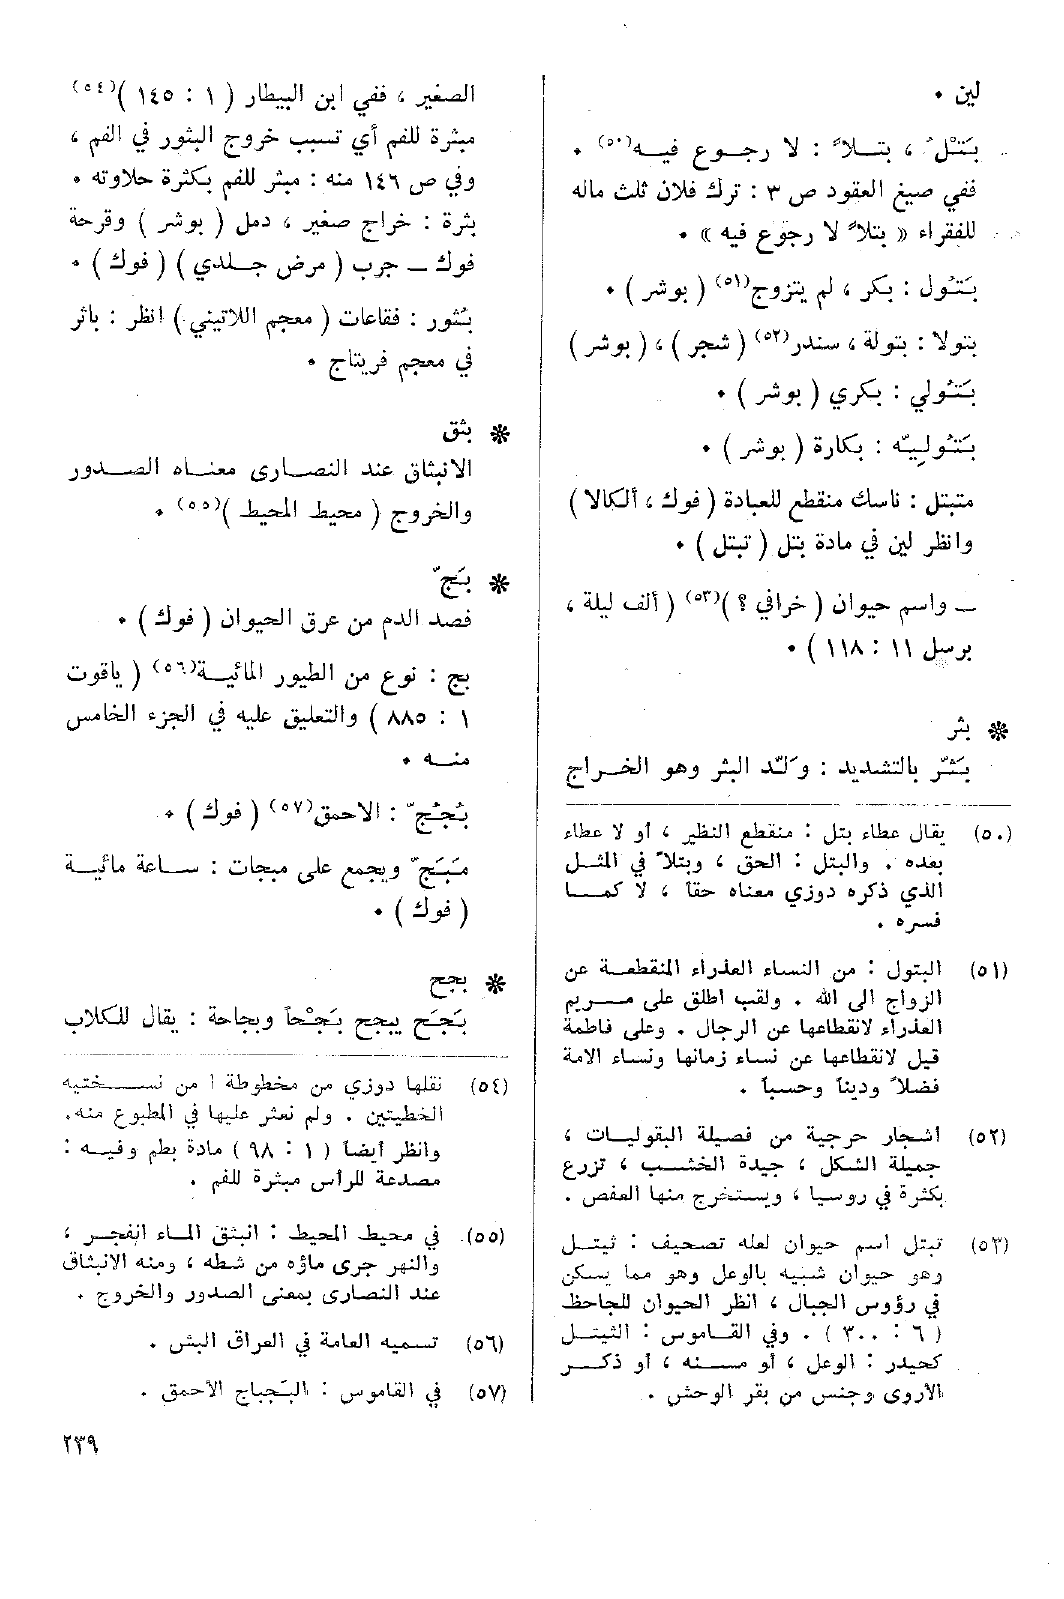 لين ٠
بَتْلُ ، بتلاً : لا رجوع فيه(٥٠) ٠
ففي صيغ العقود ص ٣ : ترك فلان ثلث ماله
للفقراء « بتلاً لا رجوع فيه » ٠
بَتُول : بكر ، لم يتزوج(٥١) ( بوشر ) ٠
بتولا : بتولة ، سندر(٥٢) ( شجر ) ، ( بوشر )
بَتُولي : بكري ( بوشر ) ٠
بَتُوليّه : بكارة ( بوشر ) ٠
متبتل : ناسك منقطع للعبادة ( فوك ، ألكالا )
وانظر لين في مادة بتل ( تبتل ) ٠
ــ واسم حيوان ( خرافي ؟ )(٥٣) ( ألف ليلة ،
برسل ١١ : ١١٨ ) ٠
❋ بثر
بَثّر بالتشديد : ولّد البثر وهو الخراج
(٥٠) يقال عطاء بتل : منقطع النظير ، أو لا عطاء
بعده . والبتل : الحق ، وبتلاً في المثل
الذي ذكره دوزي معناه حقا ، لا كما
فسره .
(٥١) البتول : من النساء العذراء المنقطعة عن
الزواج الى الله . ولقب اطلق على مريم
العذراء لانقطاعها عن الرجال . وعلى فاطمة
قيل لانقطاعها عن نساء زمانها ونساء الامة
فضلاً وديناً وحسباً .
(٥٢) أشجار حرجية من فصيلة البقوليات ،
جميلة الشكل ، جيدة الخشب ، تزرع
بكثرة في روسيا ، ويستخرج منها العفص .
(٥٣) تبتل اسم حيوان لعله تصحيف : ثيتل
وهو حيوان شبيه بالوعل وهو مما يسكن
في رؤوس الجبال ، انظر الحيوان للجاحظ
( ٦ : ٣٠٠ ) . وفي القاموس : الثيتل
كحيدر : الوعل ، أو مسنه ، أو ذكر
الاروى وجنس من بقر الوحش .
الصغير ، ففي ابن البيطار ( ١ : ١٤٥ )(٥٤)
مبثرة للفم أي تسبب خروج البثور في الفم ،
وفي ص ١٤٦ منه : مبثر للفم بكثرة حلاوته ٠
بثرة : خراج صغير ، دمل ( بوشر ) وقرحة
فوك ــ جرب ( مرض جلدي ) ( فوك ) ٠
بُثور : فقاعات ( معجم اللاتيني ) انظر : باثر
في معجم فريتاج ٠
❋ بثق
الانبثاق عند النصارى معناه الصدور
والخروج ( محيط المحيط )(٥٥) ٠
❋ بَجّ
فصد الدم من عرق الحيوان ( فوك ) ٠
بج : نوع من الطيور المائية(٥٦) ( ياقوت
١ : ٨٨٥ ) والتعليق عليه في الجزء الخامس
منه ٠
بُجُجّ : الاحمق(٥٧) ( فوك ) ٠
مَبَجّ ويجمع على مبجات : ساعة مائية
( فوك ) ٠
❋ بجح
بَجَح يبجح بَجْحاً وبجاحة : يقال للكلاب
(٥٤) نقلها دوزي من مخطوطة ا من نسختيه
الخطيتين . ولم نعثر عليها في المطبوع منه.
وانظر أيضا ( ١ : ٩٨ ) مادة بطم وفيه :
مصدعة للرأس مبثرة للفم .
(٥٥) في محيط المحيط : انبثق الماء انفجر ،
والنهر جرى ماؤه من شطه ، ومنه الانبثاق
عند النصارى بمعنى الصدور والخروج .
(٥٦) تسميه العامة في العراق البش .
(٥٧) في القاموس : البَجباج الأحمق .
٢٣٩